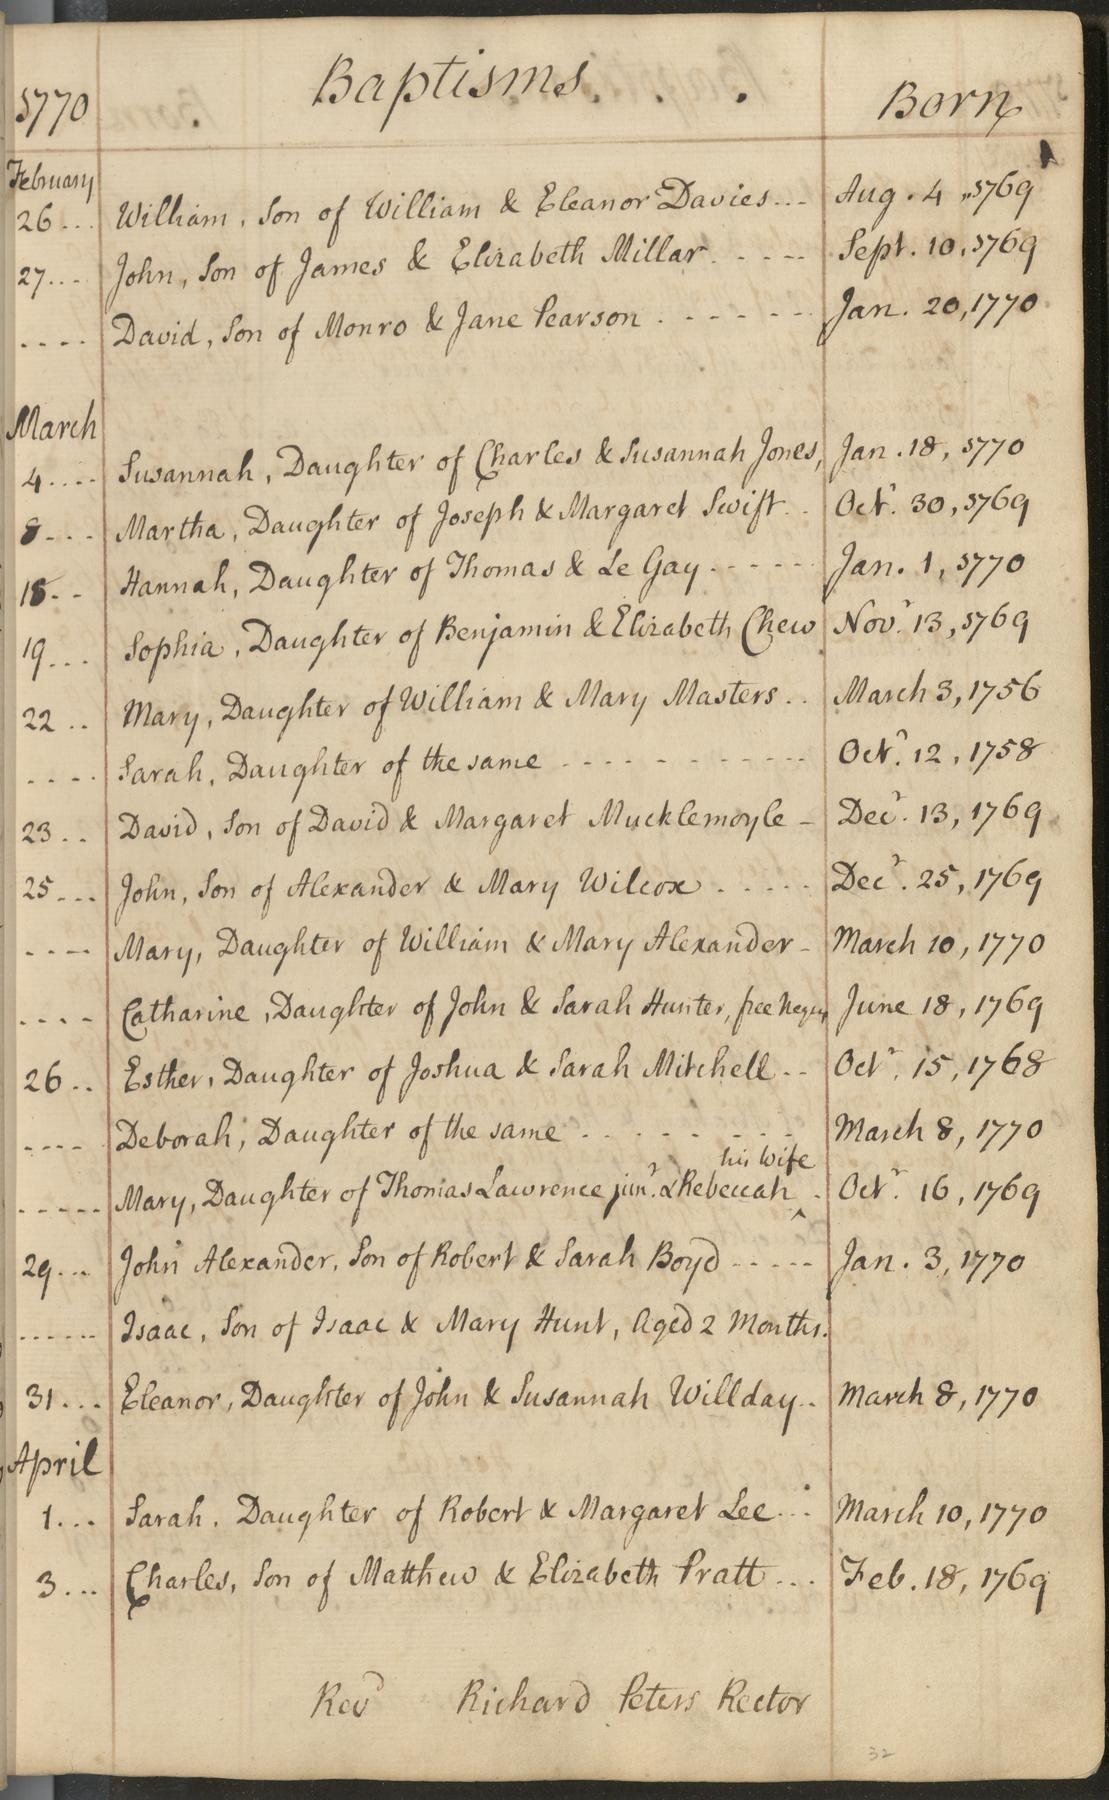 1770 Baptisms. . . Born
February
26... William, Son of William & Eleanor Davies... Aug. 4, 1769
27.... John, Son of James & Elizabeth Millar. - - - - Sept. 10, 1769
.... David, Son of Monro & Jane Pearson . - - - - - Jan. 20, 1770
March
4.... Susannah, Daughter of Charles & Susannah Jones, Jan. 18, 1770
8... Martha, Daughter of Joseph & Margaret Swift.. Octr. 30, 1769
18.. Hannah, Daughter of Thomas & Le Gay - - - - - Jan. 1, 1770
19... Sophia, Daughter of Benjamin & Elizabeth Chew Novr. 13, 1769
22.. Mary, Daughter of William & Mary Masters.. March 3, 1756
.... Sarah, Daughter of the same - - - - - - - - - - Octr. 12, 1758
23.. David, Son of David & Margaret Mucklemoyle - Decr. 13, 1769
25... John, Son of Alexander & Mary Wilcox . - - - - Decr. 25, 1769
---- Mary, Daughter of William & Mary Alexander - March 10, 1770
.... Catharine, Daughter of John & Sarah Hunter, free Negroes June 18, 1769
26.. Esther, Daughter of Joshua & Sarah Mitchell.. Octr. 15, 1768
---- Deborah, Daughter of the same . . - - - - - March 8, 1770
his Wife
..... Mary, Daughter of Thomas Lawrence junr. & Rebeccah ^ . Octr. 16, 1769
29... John Alexander, Son of Robert & Sarah Boyd - - - - - Jan. 3, 1770
...... Isaac, Son of Isaac & Mary Hunt, Aged 2 Months.
31... Eleanor, Daughter of John & Susannah Willday.. March 8, 1770
April
1... Sarah, Daughter of Robert & Margaret Lee... March 10, 1770
3... Charles, Son of Matthew & Elizabeth Pratt... Feb. 18, 1769
Revd Richard Peters Rector
32